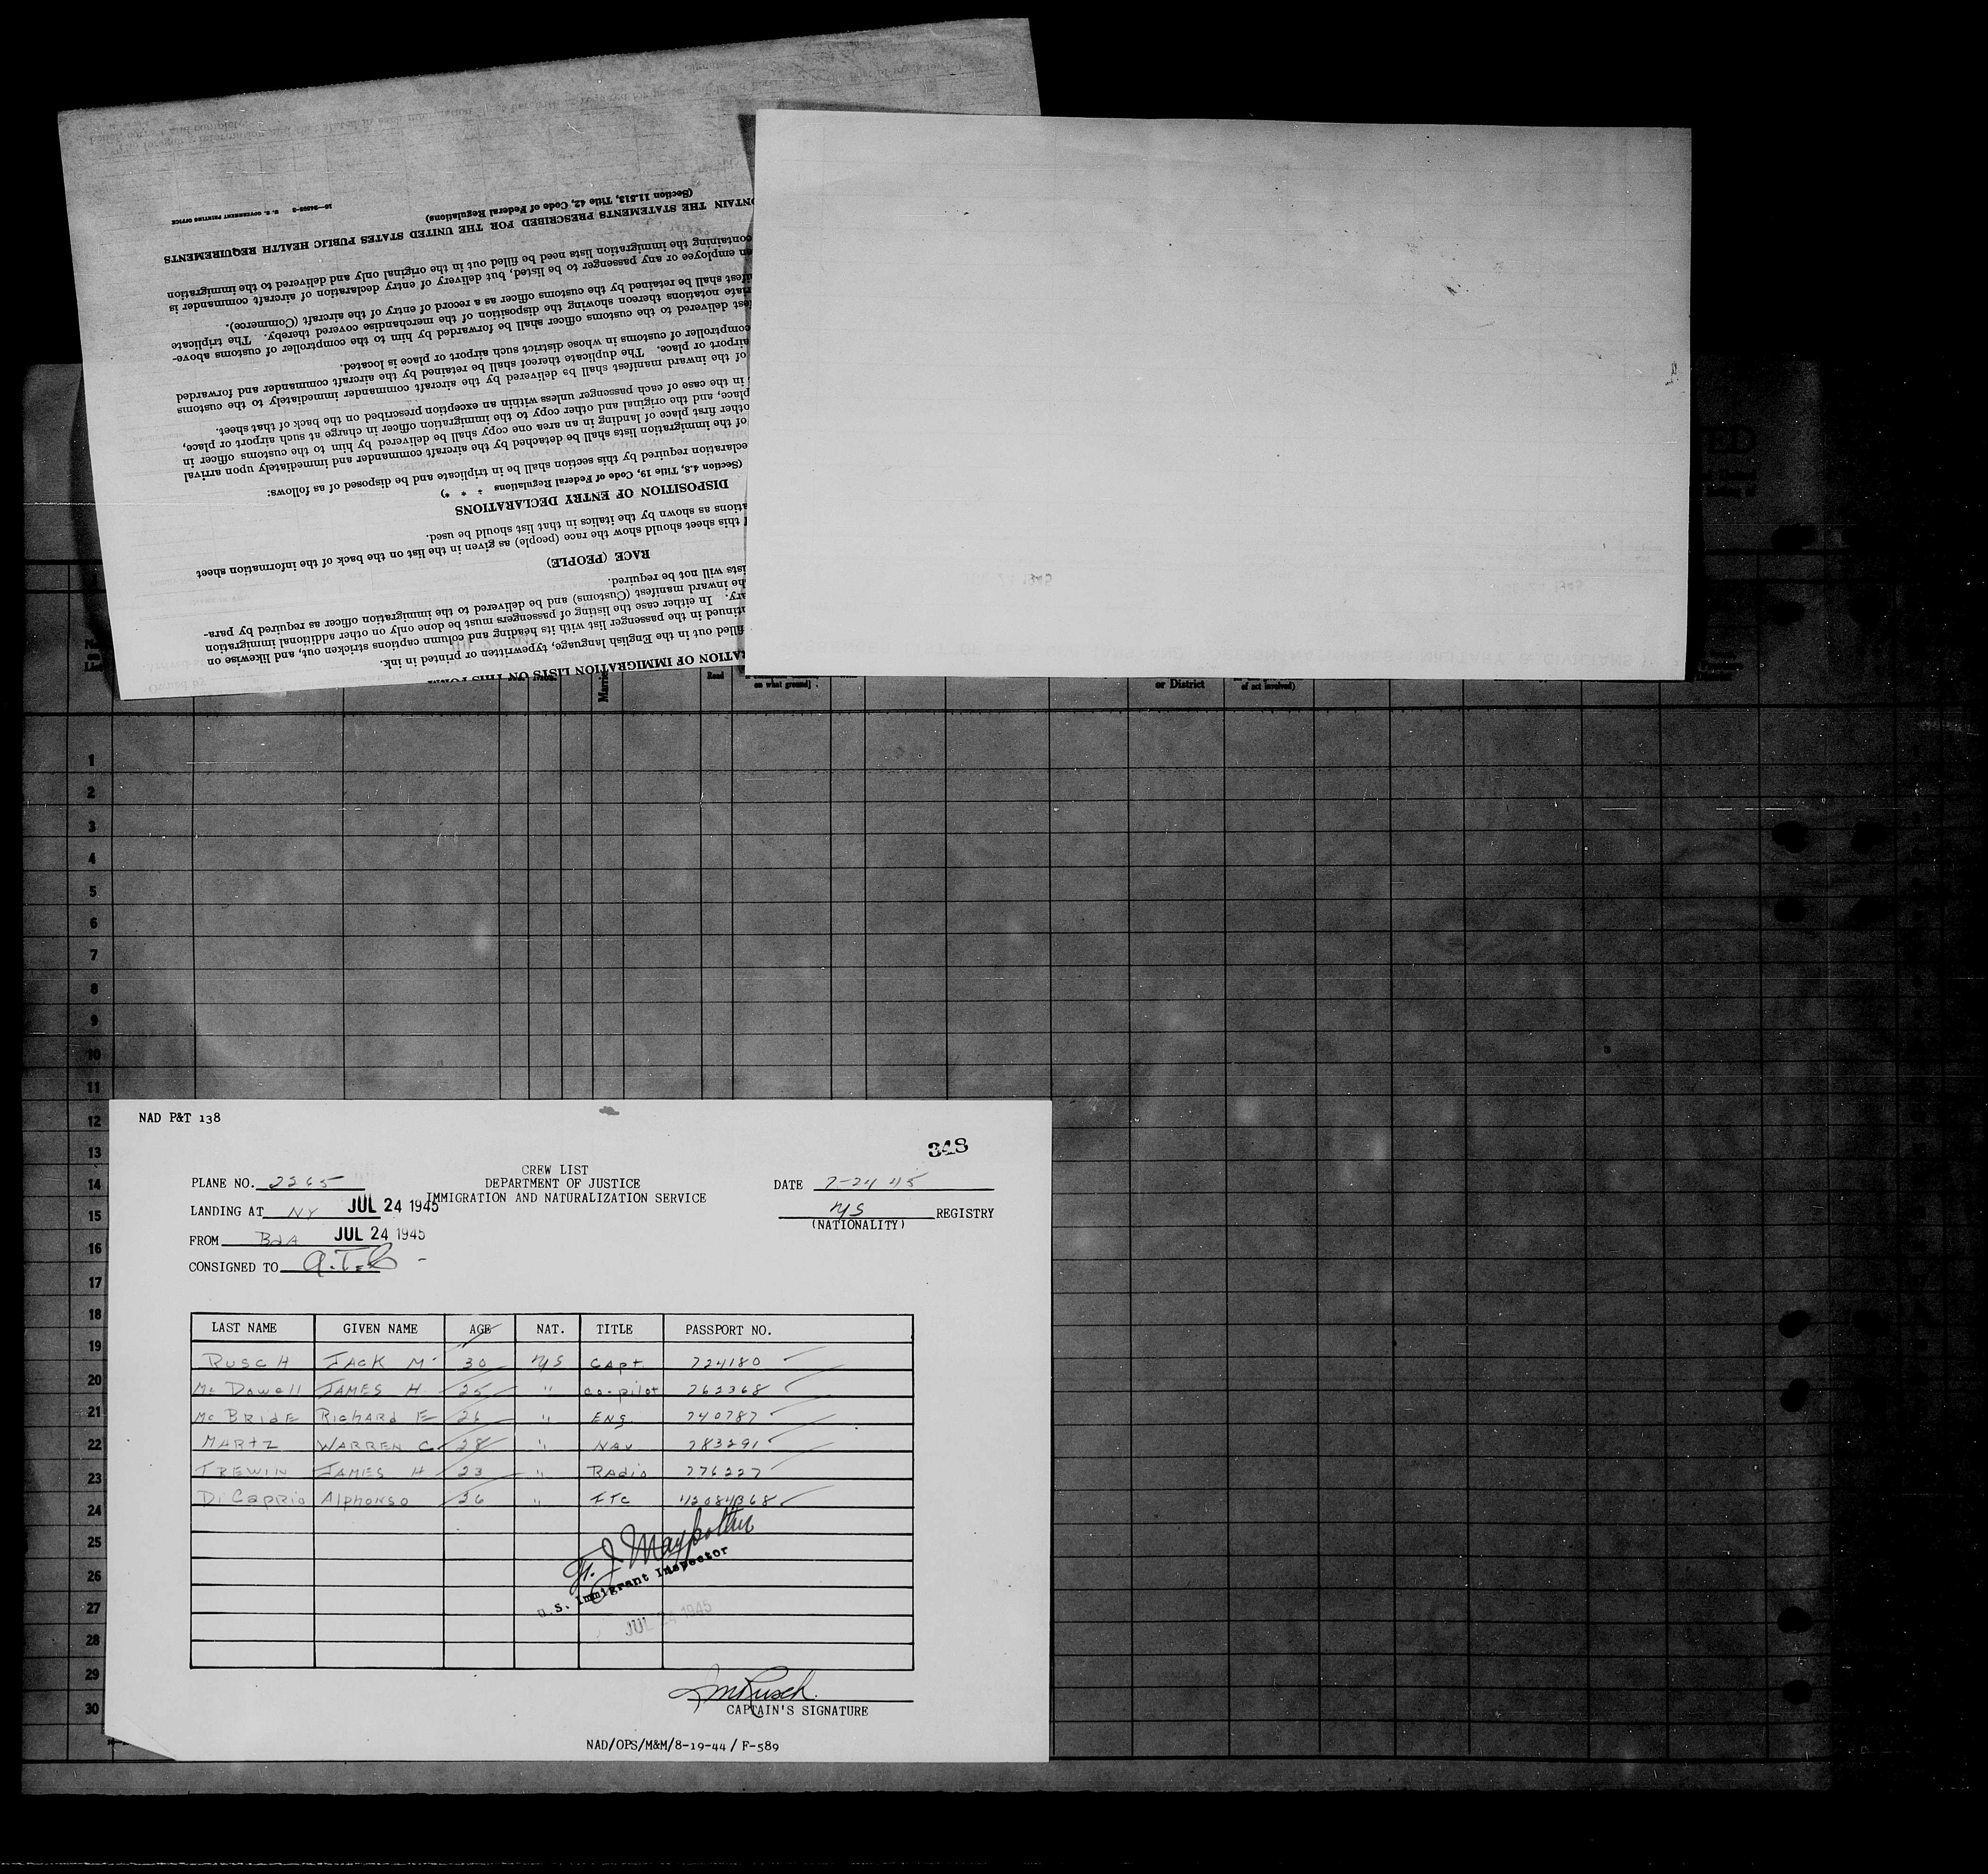 (Section 11.513, Title 42, Code of Federal Regulations)
16—24566-2 U. S. GOVERNMENT PRINTING OFFICE
THE STATEMENTS PRESCRIBED FOR THE UNITED STATES PUBLIC HEALTH REQUIREMENTS
containing the immigration lists need be filled out in the original only and delivered to the immigration
employee or any passenger to be listed, but delivery of entry declaration of aircraft commander is
shall be retained by the customs officer as a record of entry of the aircraft (Commerce).
notations thereon showing the disposition of the merchandise covered thereby. The triplicate
delivered to the customs officer shall be forwarded by him to the comptroller of customs above-
comptroller of customs in whose district such airport or place is located.
airport or place. The duplicate thereof shall be retained by the aircraft commander and forwarded
of the inward manifest shall be delivered by the aircraft commander immediately to the customs
in the case of each passenger unless within an exception prescribed on the back of that sheet.
place, and the original and other copy to the immigration officer in charge at such airport or place,
other first place of landing in an area one copy shall be delivered by him to the customs officer in
of the immigration lists shall be detached by the aircraft commander and immediately upon arrival
declaration required by this section shall be in triplicate and be disposed of as follows:
(Section 4.8, Title 19, Code of Federal Regulations * * *)
DISPOSITION OF ENTRY DECLARATIONS
as shown by the italics in that list should be used.
this sheet should show the race (people) as given in the list on the back of the information sheet
RACE (PEOPLE)
will not be required.
inward manifest (Customs) and be delivered to the immigration officer as required by para-
In either case the listing of passengers must be done only on other additional immigration
in the passenger list with its heading and column captions stricken out, and likewise on
filled out in the English language, typewritten or printed in ink.
OF IMMIGRATION LISTS ON THIS FORM
Read
on what ground]
or District
of act involved)
1
2
3
4
5
6
7
8
9
10
11
12
13
14
15
16
17
18
19
20
21
22
23
24
25
26
27
28
29
30
NAD P&T 138
348
CREW LIST
DEPARTMENT OF JUSTICE
IMMIGRATION AND NATURALIZATION SERVICE
PLANE NO. 2265
DATE 7-24 45
LANDING AT NY JUL 24 1945
US REGISTRY
(NATIONALITY)
FROM BdA JUL 24 1945
CONSIGNED TO A.T.C.
LAST NAME GIVEN NAME AGE NAT. TITLE PASSPORT NO.
RUSCH JACK M. 30 US CAPt 724180
McDowell JAMES H 25 " co-pilot 762368
McBRIdE RicHARd E 26 " ENg. 740787
MARtZ WARREN C 28 " NAV 783291
TREWIN JAMES H 23 " RAdio 776227
DiCaprio Alphonso 36 " FTC 42084368
U.S. Immigrant Inspector
JUL 24 1945
JMRusch.
CAPTAIN'S SIGNATURE
NAD/OPS/M&M/8-19-44 / F-589